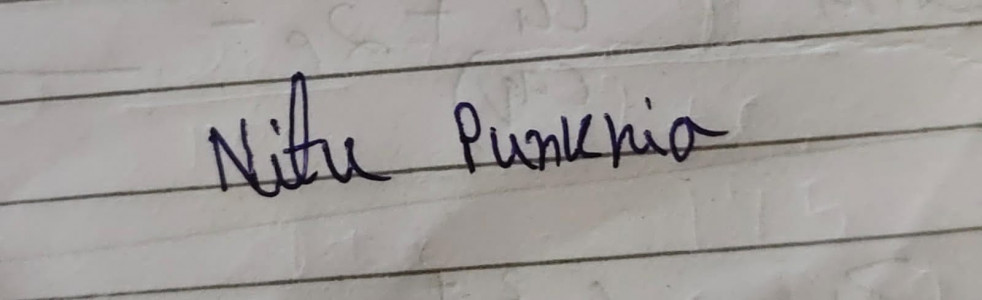 Nitu Punknia